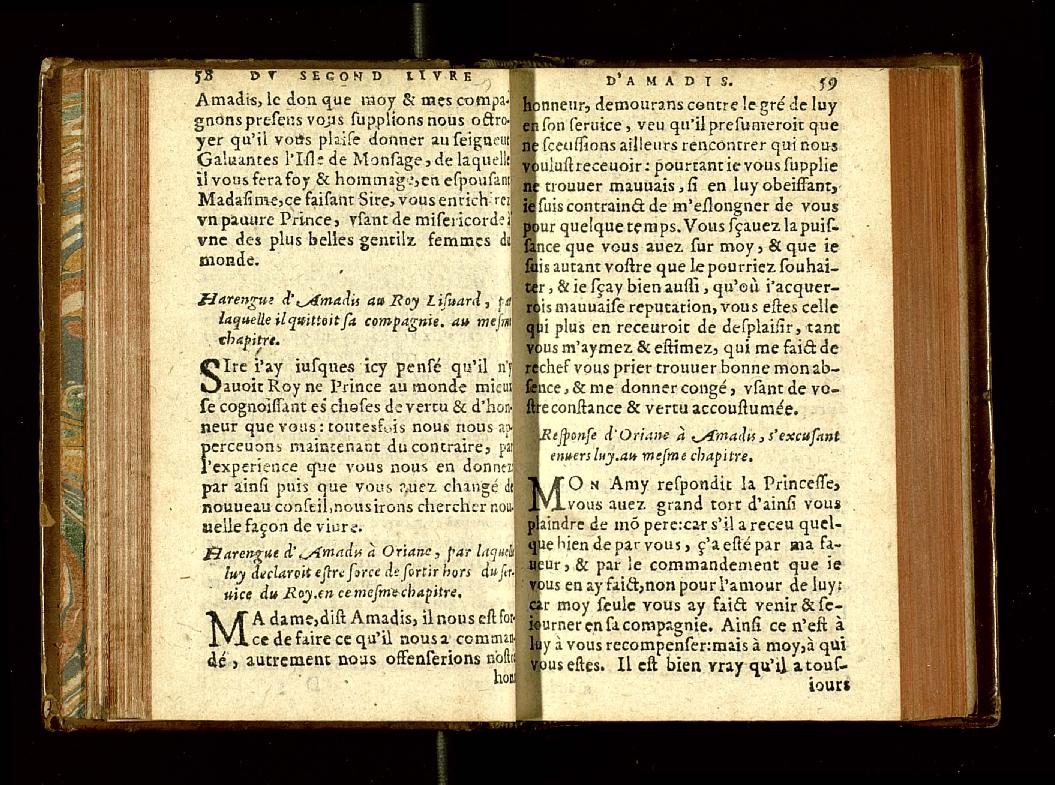 58 DV SECOND LIVRE
Amadis, le don que moy & mes compa-
gnons presens vous supplions nous octro-
yer qu'il vous plaise donner au seigneur
Galuantes l'Isle de Monsage, de laquelle
il vous fera foy & hommage, en espousant
Madasime, ce faisant Sire, vous enrichirez
vn pauure Prince, vsant de misericorde à
vne des plus belles gentilz femmes du
monde.
Harengue d'Amadis au Roy Lisuard, par
laquelle il quittoit sa compagnie. au mesme
chapitre.
SIre i'ay iusques icy pensé qu'il n'y
auoit Roy ne Prince au monde mieux
se cognoissant és choses de vertu & d'hon-
neur que vous: toutesfois nous nous ap-
perceuons maintenant du contraire, par
l'experience que vous nous en donnez
par ainsi puis que vous auez changé de
nouueau conseil, nous irons chercher nou-
uelle façon de viure.
Harengue d'Amadis à Oriane, par laquelle
luy declaroit estre force de sortir hors du ser-
uice du Roy. en ce mesme chapitre.
MA dame, dist Amadis, il nous est for-
ce de faire ce qu'il nous a comman-
dé, autrement nous offenserions nostre
hon
D'AMADIS. 59
honneur, demourans contre le gré de luy
en son seruice, veu qu'il presumeroit que
ne sceussions ailleurs rencontrer qui nous
voulust receuoir: pourtant ie vous supplie
ne trouuer mauuais, si en luy obeissant,
ie suis contrainct de m'eslongner de vous
pour quelque temps. Vous sçauez la puis-
sance que vous auez sur moy, & que ie
suis autant vostre que le pourriez souhai-
ter, & ie sçay bien aussi, qu'où i'acquer-
rois mauuaise reputation, vous estes celle
qui plus en receuroit de desplaisir, tant
vous m'aymez & estimez, qui me faict de
rechef vous prier trouuer bonne mon ab-
sence, & me donner congé, vsant de vo-
stre constance & vertu accoustumée.
Response d'Oriane à Amadis, s'excusant
enuers luy. au mesme chapitre.
MON Amy respondit la Princesse,
vous auez grand tort d'ainsi vous
plaindre de mõ pere: car s'il a receu quel-
que bien de par vous, ç'a esté par ma fa-
ueur, & par le commandement que ie
vous en ay faict, non pour l'amour de luy:
car moy seule vous ay faict venir & se-
iourner en sa compagnie. Ainsi ce n'est à
luy à vous recompenser: mais à moy, à qui
vous estes. Il est bien vray qu'il a tous-
iours